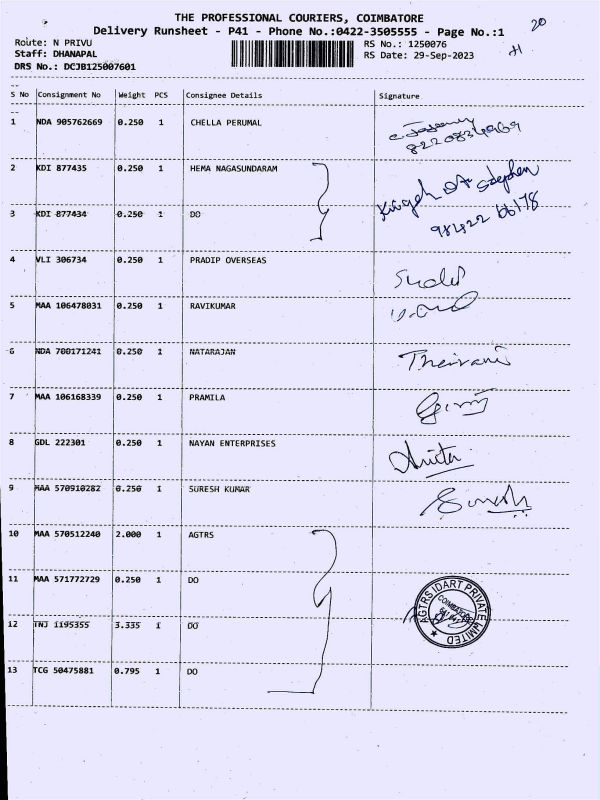 THE PROFESSIONAL COURIERS, COIMBATORE
Delivery Runsheet - P41 - Phone No.:0422-3505555 - Page No.:1
20
Route: N PRIVU
RS No.: 1250076
Staff: DHANAPAL
RS Date: 29-Sep-2023
DRS No.: DCJB125007601
S No Consignment No Weight PCS Consignee Details Signature
1 NDA 905762669 0.250 1 CHELLA PERUMAL
2 KDI 877435 0.250 1 HEMA NAGASUNDARAM
Stephen
3 KDI 877434 0.250 1 DO
98422 66178
4 VLI 306734 0.250 1 PRADIP OVERSEAS
5 MAA 106478031 0.250 1 RAVIKUMAR
6 NDA 700171241 0.250 1 NATARAJAN
7 MAA 106168339 0.250 1 PRAMILA
8 GDL 222301 0.250 1 NAYAN ENTERPRISES
Anita
9 MAA 570910282 0.250 1 SURESH KUMAR
Suresh
10 MAA 570512240 2.000 1 AGTRS
11 MAA 571772729 0.250 1 DO
AGTRS IDART PRIVATE LIMITED
COIMBATORE
12 TNJ 1195355 3.335 1 DO
13 TCG 50475881 0.795 1 DO